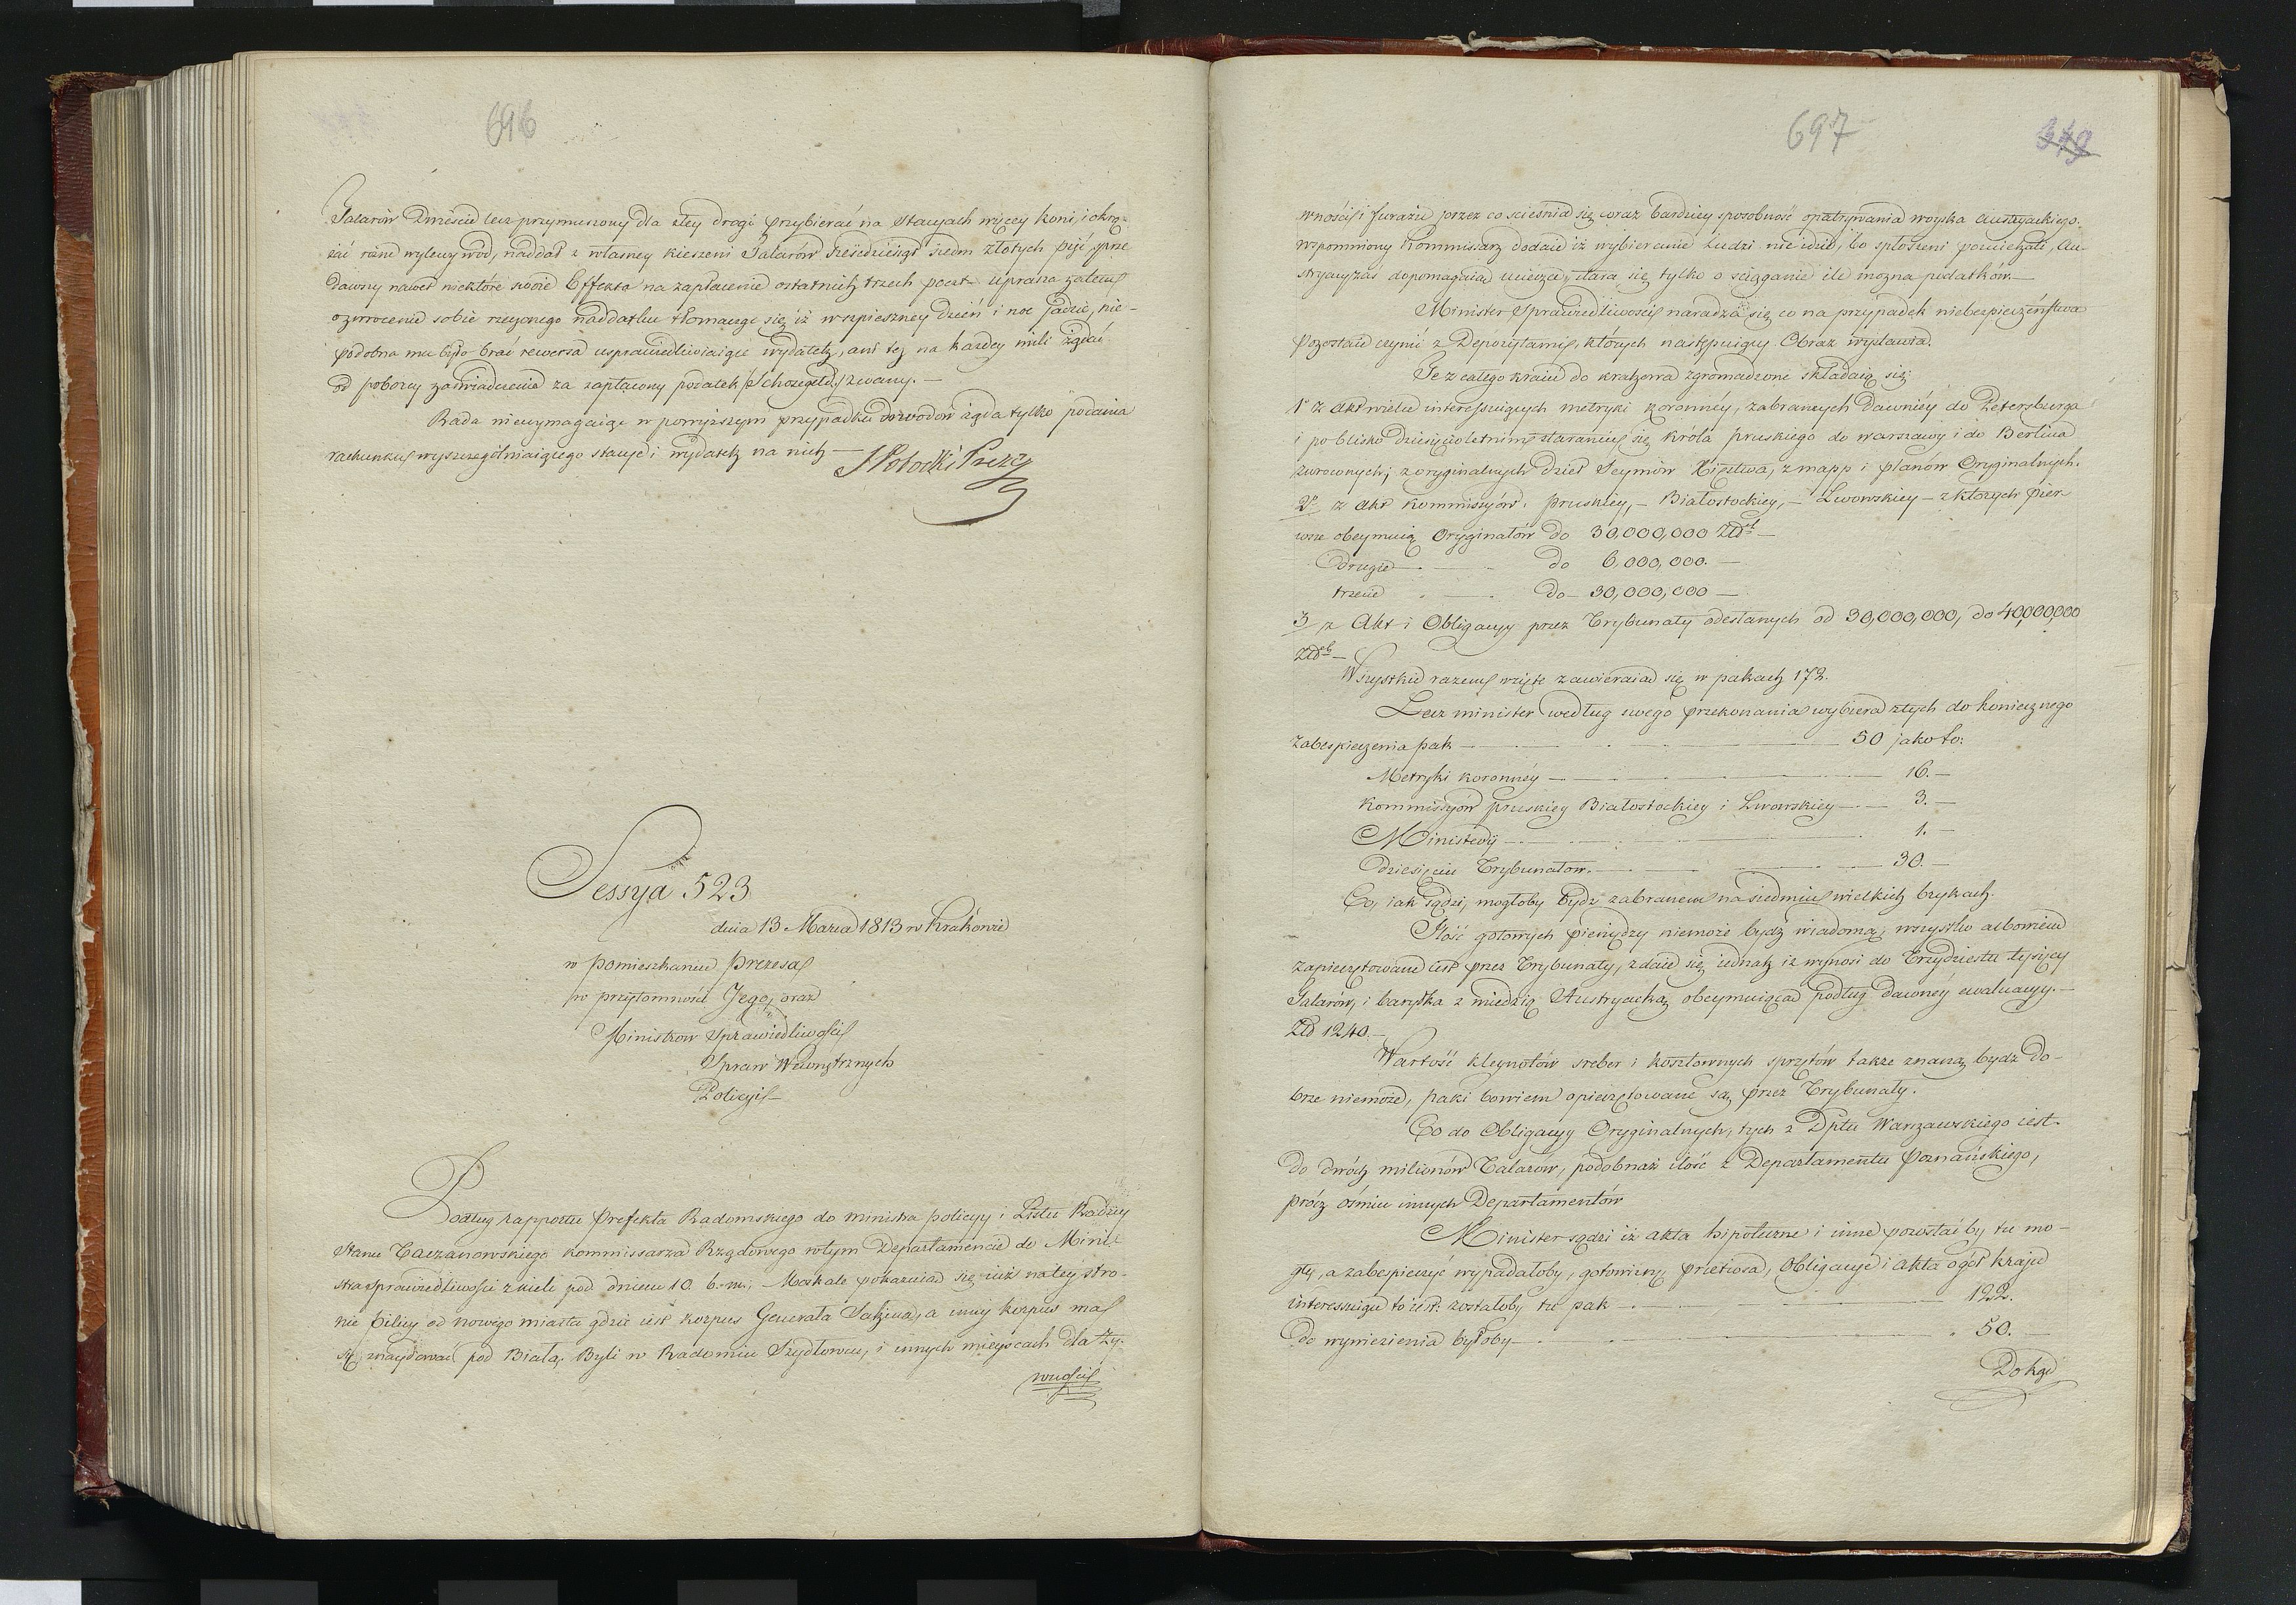 696
Talarów Dwieście lecz przymuszony dla złey drogi przybierać na stacyach więcey koni, i okrą-
żać różne wylewy wód, naddał z własney kieszeni Talarów sześćdziesiąt siedm złotych pięć, sprze
dawszy nawet niektóre swoie Effekta na zapłacenie ostatnich trzech poczt. Uprasza zatem
o zwrócenie sobie rzeczonego naddatku tłomacząc się iż w szpieszney dzień i noc jadzie, nie-
podobna mu było brać rewersa usprawiedliwiaiące wydatek, ani też na każdey mili żądać
od poborcy zaświadczenia za zapłacony podatek /:Schosegeld:/ zwany. —
Rada niewymagaiąc w powyższym przypadku dowodów żąda tylko podania
rachunku wyszczególniaiącego stacye i wydatek na nich —
S Potocki Prezy
Sessya 523
dnia 13 Marca 1813 w Krakowie
w pomieszkaniu Prezesa
w przytomności Jego, oraz
Ministrów Sprawiedliwości
Spraw Wewnętrznych
Policyi —
Podług rapportu Prefekta Radomskiego do ministra policyi i Listu Radzcy
Stanu Taczanowskiego kommissarza Rządowego w tym Departamencie do Mini-
stra Sprawiedliwości z Kielc pod dniem 10. b. m., Moskale pokazuią się iuż na tey stro-
nie Pilicy od nowego miasta gdzie iest korpus Generała Sakena, a inny korpus ma
się znaydować pod Białą. Byli w Radomiu Szydłowcu, i innych mieyscach dla ży-
wności
697
349
wności i furażu przez co scieśnia się coraz bardziey sposobność opatrywania woyska Austryackiego.
wspomniony Kommissarz dodaie iż wybieranie Ludzi nie idzie, bo spłoszeni pouciekali, Au-
stryacy zaś dopomagaią ucieczce, stara się tylko o sciąganie ile można podatków. —
Minister Sprawiedliwości naradza się co na przypadek niebezpieczeństwa
pozostaie czynić z Depozytami, których następuiący Obraz wystawia.
Te z całego kraiu do Krakowa zgromadzone składaią się
1º z akt wielu interessuiących metryki koronney, zabranych dawniey do Petersburga
i po blisko dziesięcioletnim staraniu się króla pruskiego do warszawy i do Berlina
zwróconych; z oryginalnych dzieł Seymów Xięstwa, z mapp i planów Oryginalnych.
2º z akt kommissyów. pruskiey, — Białostockiey, — Lwowskiey — z których pier
wsze obeymuią Oryginałów do 30,000,000 Złd —
Drugie — do 6,000,000. —
trzecie — do — 30,000,000 —
3 z Akt i Obligacyy przez Trybunały odesłanych od 30,000,000, do 40,000,000
Złd —
Wszystkie razem wzięte zawieraią się w pakach 172.
Lecz minister według swego przekonania wybiera z tych do koniecznego
zabespieczenia pak — 50 jako to:
Metryki koronney — 16. —
Kommissyów pruskiey Białostockiey i Lwowskiey — 3. —
1. —
Dziesięciu Trybunałów. — 30. —
Co, iak sądzi, mogłoby bydź zabranem na siedmiu wielkich brykach.
Ilość gotowych pieniędzy niemoże bydź wiadomą, wszystko albowiem
zapieczętowane iest przez Trybunały, zdaie się iednak iż wynosi do Trzydziestu tysięcy
Talarów, i baryłka z miedzią Austryacką obeymuiąca podług dawney ewaluacyy. —
Złd 1240. —
Wartość kleynotów sreber i kosztownych sprzętów także znaną bydź do-
brze niemoże, paki bowiem opieczętowane są przez Trybunały.
Co do Obligacyy Oryginalnych, tych z Dptu Warszawskiego iest
do dwóch milionów Talarów, podobnaż ilość z Departamentu Poznańskiego,
prócz ośmiu innych Departamentów
Minister sądzi iż akta hipoteczne i inne pozostaćby tu mo-
gły, a zabespieczyć wypadałoby, gotowizny, pretiosa, Obligacye i akta ogół kraju
interessuiące to iest: zostałoby tu pak — 122.
Do wywiezienia byłoby — 50. —
Dokąd